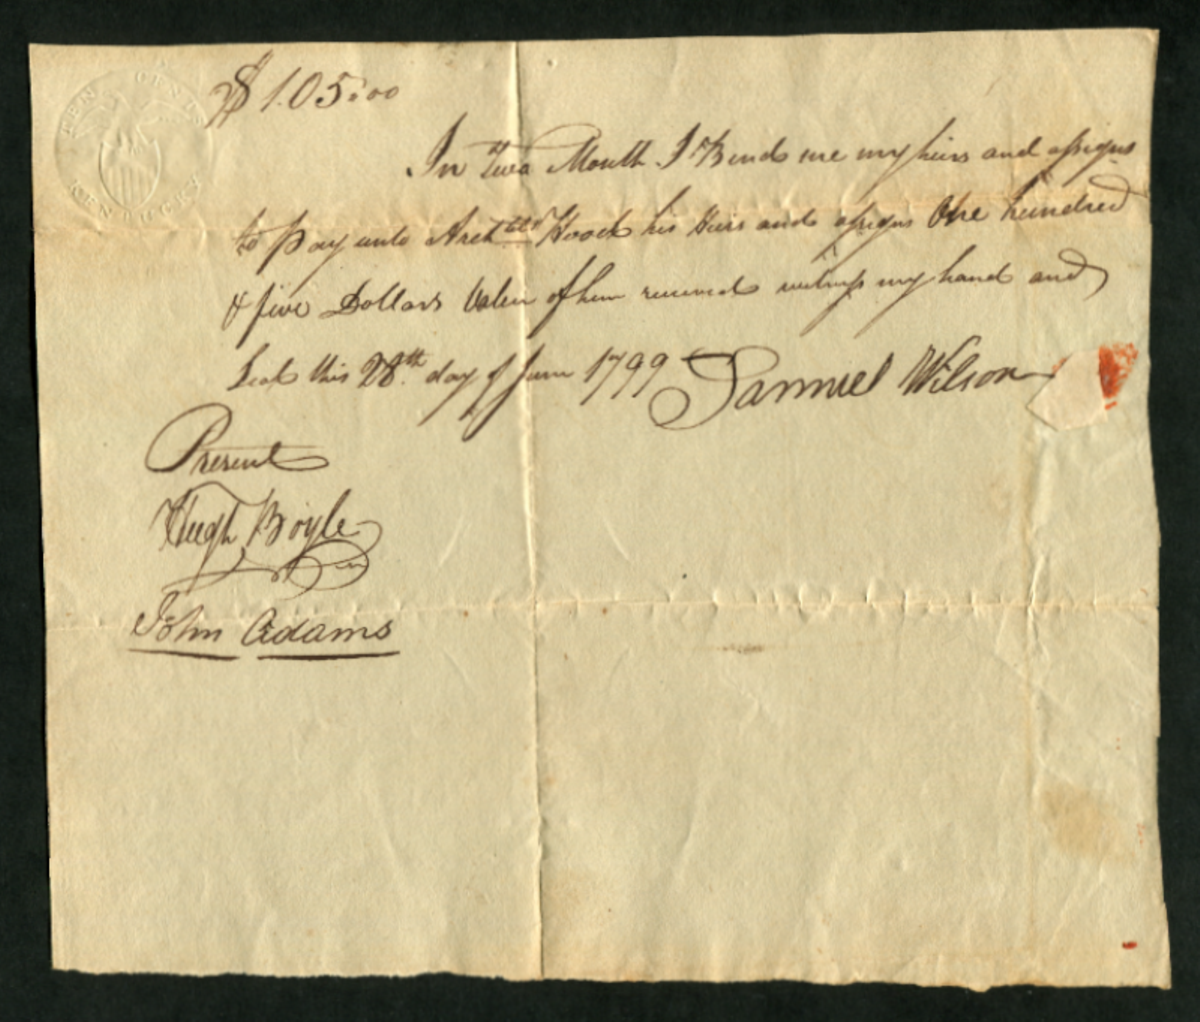 TEN CENTS
KENTUCKY
$105.00
In two Month I Bind me my heirs and assigns
to pay unto his Heirs and assigns One hundred
& five Dollars Valew of him received witness my hand and
Seal this 28.th day of June 1799 Samuel Wilson
Present
Hugh Boyle
John Adams